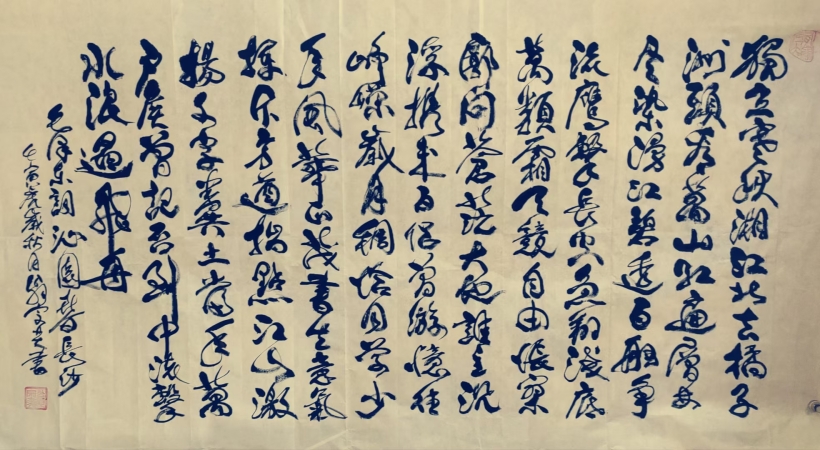 獨立寒秋湘江北去橘子
洲頭看萬山紅遍層林
尽染漫江碧透百舸爭
流鹰擊長空魚翔淺底
萬類霜天競自由悵寥
廓問蒼茫大地誰主沉
浮携來百侶曾游憶往
崢嶸歲月稠恰同學少
年風華正茂書生意氣
揮斥方遒指點江山激
揚文字糞土當年萬
户侯曾記否到中流擊
水浪遏飛舟
毛澤東詞沁園春長沙
壬寅歲秋月書